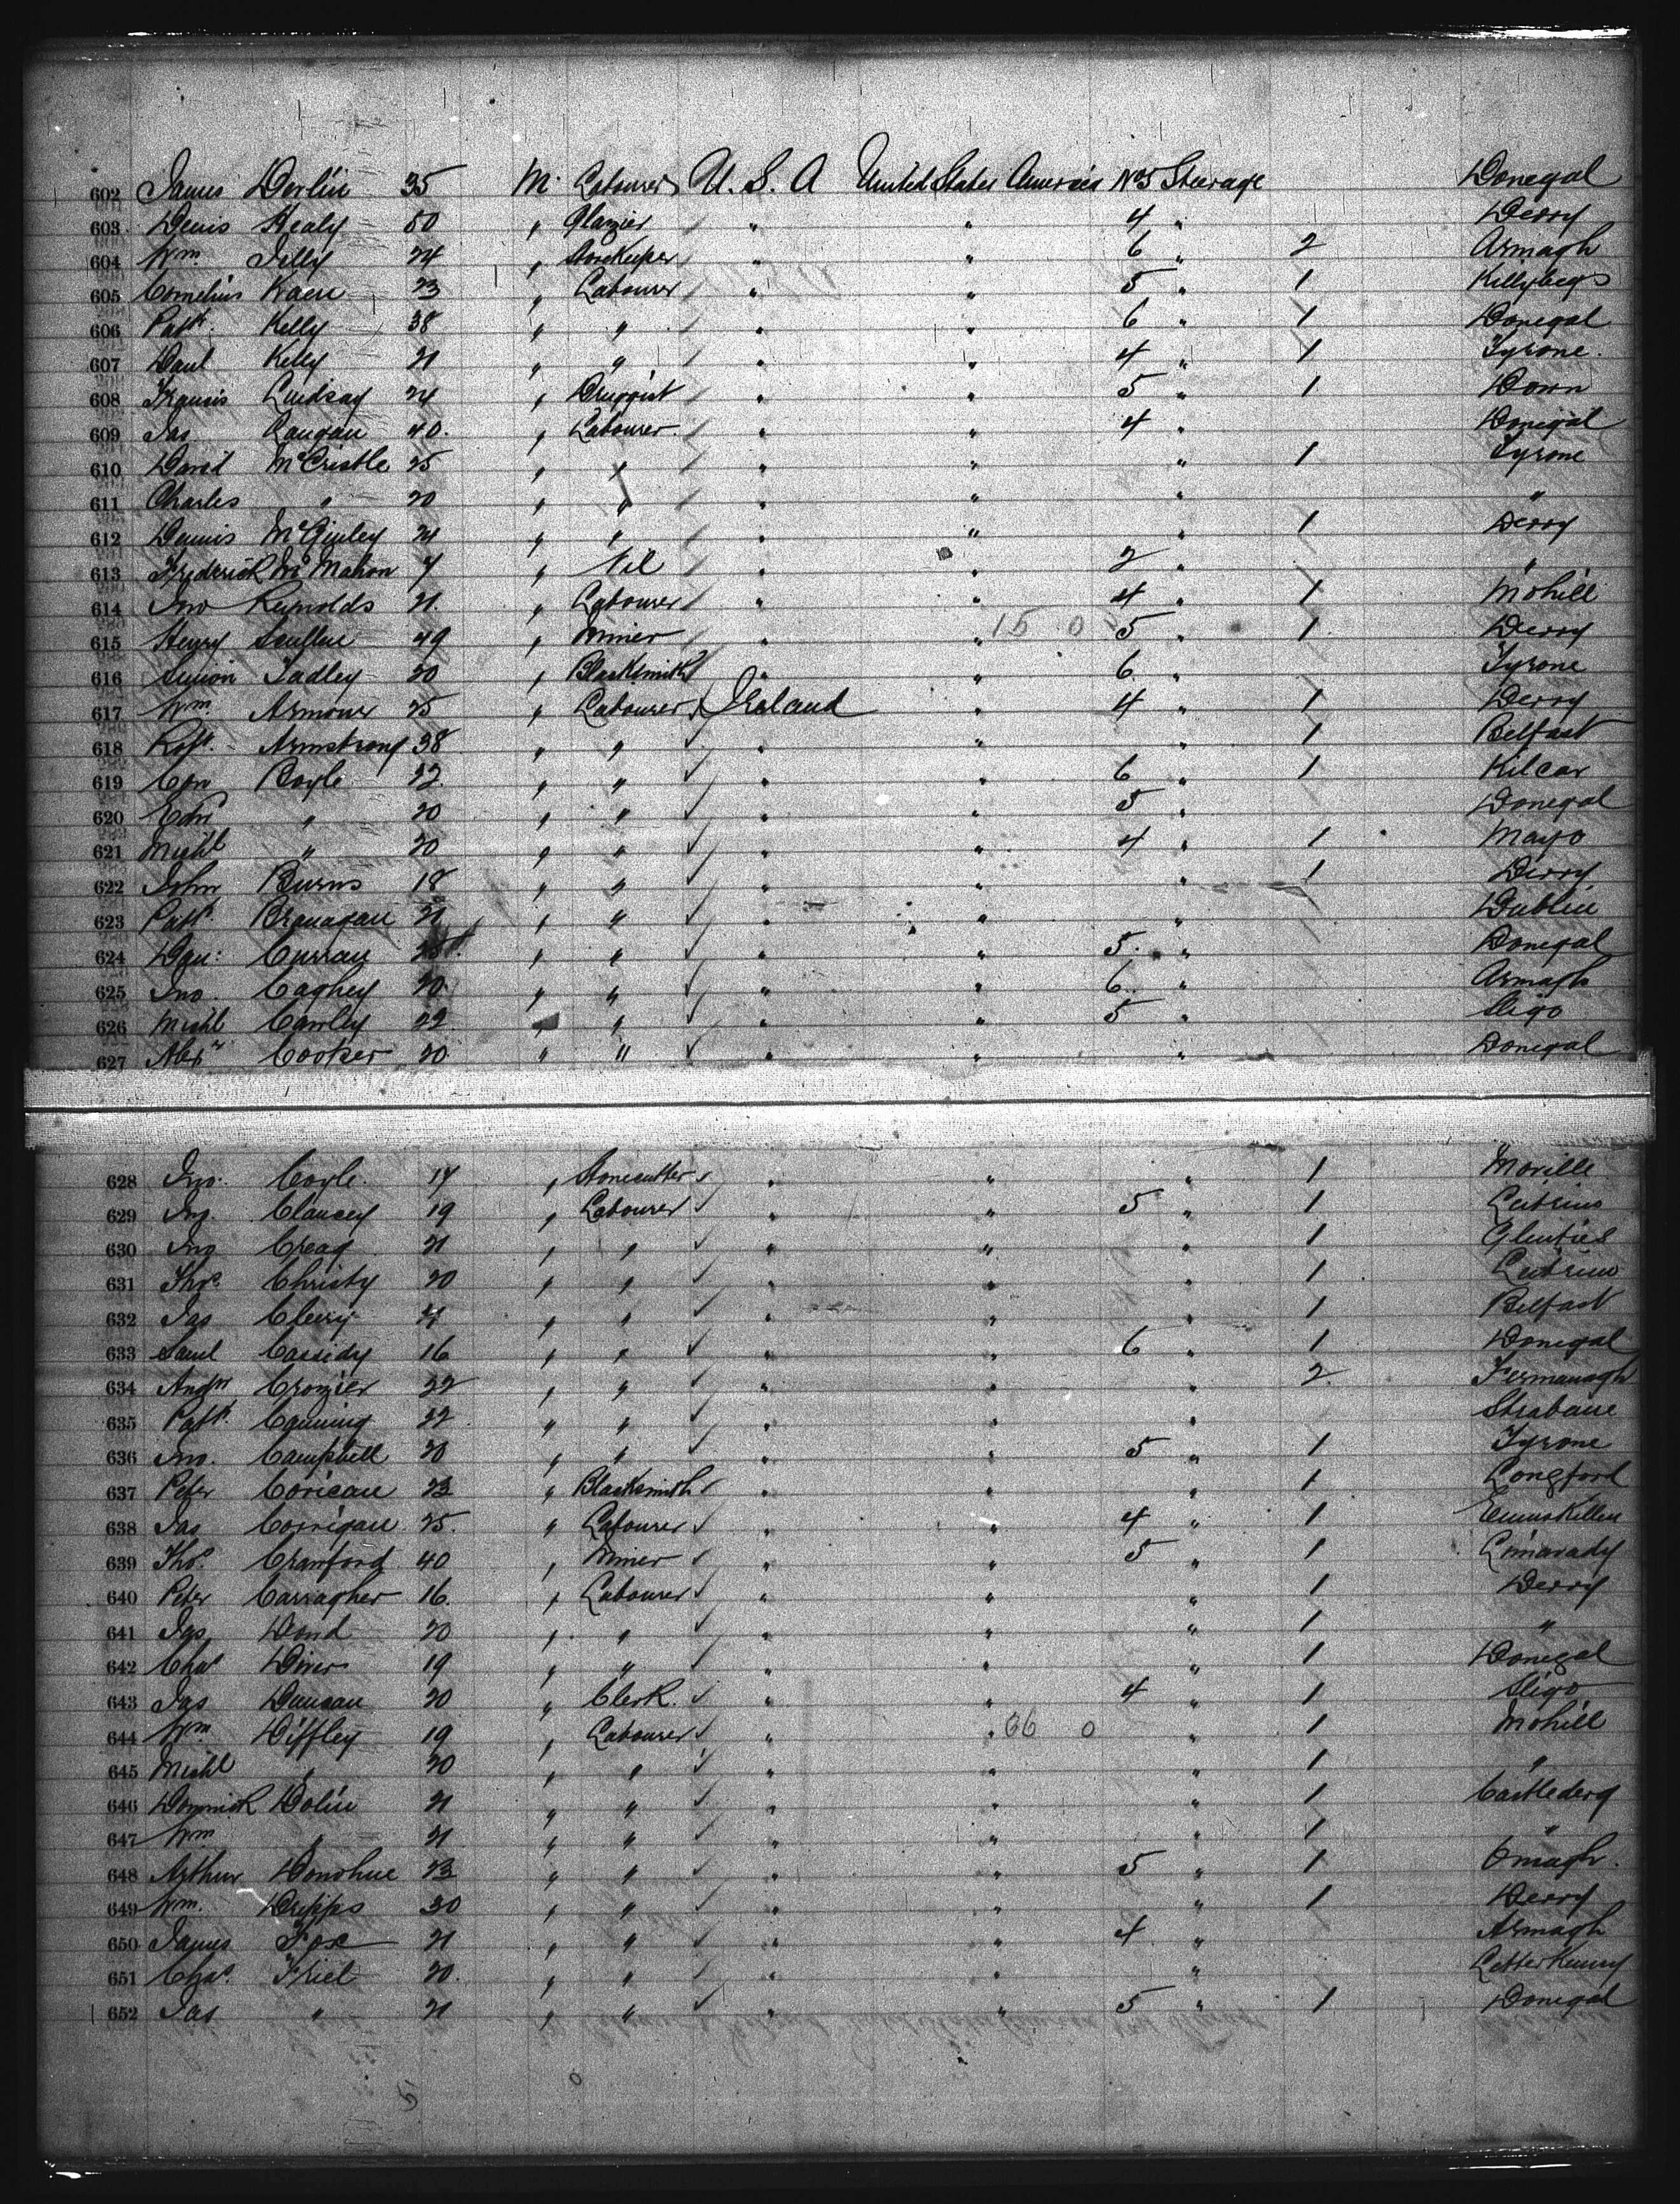 602 James Devlin 35 M. Labourer U.S.A United States America No 5 Steerage Donegal
603 Denis Healy 50 " Glazier " " 4 " Derry
604 Wm. Jelly 24 " Storekeeper " " 6 " 2 Armagh
605 Cornelius Kaen 23 " Labourer " " 5 " 1 Killybegs
606 Patk. Kelly 38 " " " " 6 " 1 Donegal
607 Paul Kelly 21 " " " " 4 " 1 Tyrone.
608 Francis Lindsay 24 " Druggist " " 5 " 1 Down
609 Jas Langan 40. " Labourer. " " 4 " Donegal
610 David McCristle 25 " " " " " 1 Tyrone
611 Charles " 20 " " " " " "
612 Dennis McGinley 24 " " " " " 1 Derry
613 Frederick McMahon 7 " Nil " " 2 " "
614 Jno Reynolds 21. " Labourer " " 4 " 1 Mohill
615 Henry Scullin 49 " Miner " " 15 0 5 " 1 Derry
616 Simion Tadley 20 " Blacksmith " " 6 " Tyrone
617 Wm. Armour 25 " Labourer Ireland " 4 " 1 Derry
618 Robt. Armstrong 38 " " " " " 1 Belfast
619 Con Boyle 22. " " " " 6 " 1 Kilcar
620 Edw " 20 " " " " 5 " Donegal
621 Michl " 20 " " " " 4 " 1 Mayo
622 John Burns 18 " " " " " 1 Derry
623 Patk. Branagan 21 " " " " " Dublin
624 Dan: Curran " " " " 5. " Donegal
625 Jno. Caghey 20. " " " " 6. " Armagh
626 Michl Cawley 22. " " " 5 " Sligo
627 Alexr Cooker 20. " " " " " Donegal
628 Jno. Coyle. 17 " Stonecutter " " " 1 Moville
629 Jno. Clancey 19 " Labourer " " 5 " 1 Leitrim
630 Jno Creag 21 " " " " " 1 Glenties
631 Thos. Christy 20 " " " " " 1 Leitrim
632 Jas Cleery 21 " " " " " 1 Belfast
633 Saml Cassidy 16 " " " " 6 " 1 Donegal
634 Andw Crozier 22 " " " " " 2. Fermanagh
635 Patk. Canning 22. " " " " " Strabane
636 Jno. Campbell 20 " " " " 5 " 1 Tyrone
637 Peter Corican 23 " Blacksmith " " " 1 Longford
638 Jas Corrigan 25. " Labourer " " 4 " 1 Enniskillen
639 Thos. Crawford 40 " Miner " " 5 " 1 Limavady
640 Peter Carragher 16. " Labourer " " " 1 Derry
641 Jas Dond 20 " " " " " 1 "
642 Chas Diver 19 " " " " " 1 Donegal
643 Jas Duncan 20 " Clerk. " " 4 " 1 Sligo
644 Wm. Diffley 19 " Labourer " " 66 0 " 1 Mohill
645 Michl " 20 " " " " " 1 "
646 Dominick Dolin 21 " " " " " 1 Castlederg
647 Wm " 21 " " " " " 1 "
648 Arthur Donohue 23 " " " " 5 " 1 Omagh.
649 Wm. Dripps 20 " " " " " 1 Derry
650 James Fox 21 " " " " 4 " Armagh
651 Chas. Friel 20. " " " " " Letterkenny
652 Jas " 21 " " " " 5 " 1 Donegal